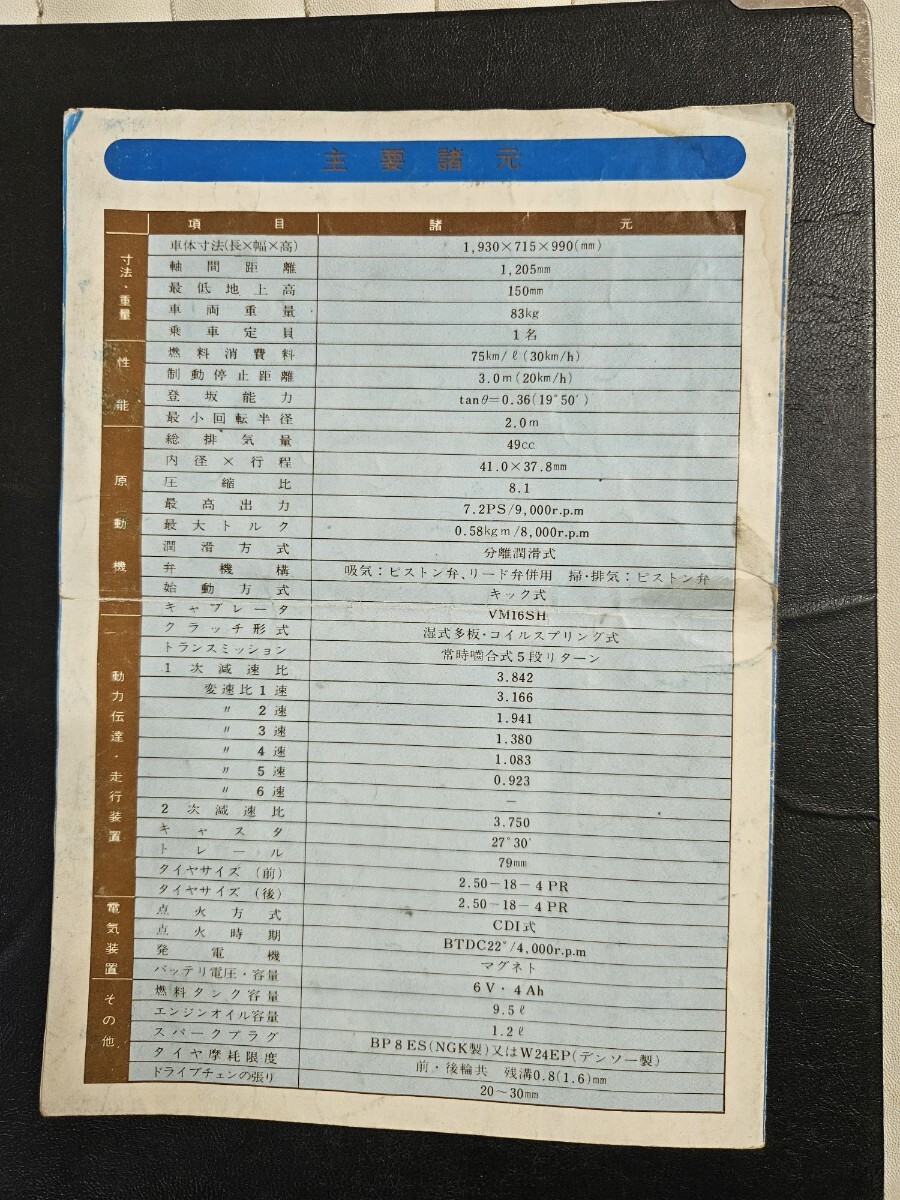 主要諸元
項目 諸元
寸法・重量
車体寸法(長×幅×高) 1,930×715×990(mm)
軸間距離 1,205mm
最低地上高 150mm
車両重量 83kg
乗車定員 1名
性能
燃料消費料 75km/ℓ(30km/h)
制動停止距離 3.0m(20km/h)
登坂能力 tanθ=0.36(19°50′)
最小回転半径 2.0m
原動機
総排気量 49c.c.
内径×行程 41.0×37.8mm
圧縮比 8.1
最高出力 7.2PS/9,000r.p.m
最大トルク 0.58kgm/8,000r.p.m
潤滑方式 分離潤滑式
弁機構 吸気:ピストン弁、リード弁併用 掃・排気:ピストン弁
始動方式 キック式
キャブレータ VM16SH
動力伝達・走行装置
クラッチ形式 湿式多板・コイルスプリング式
トランスミッション 常時嚙合式5段リターン
1次減速比 3.842
変速比1速 3.166
〃 2速 1.941
〃 3速 1.380
〃 4速 1.083
〃 5速 0.923
〃 6速 −
2次減速比 3.750
キャスタ 27°30′
トレール 79mm
タイヤサイズ(前) 2.50−18−4PR
タイヤサイズ(後) 2.50−18−4PR
電気装置
点火方式 CDI式
点火時期 BTDC22°/4,000r.p.m
発電機 マグネト
バッテリ電圧・容量 6V・4Ah
その他
燃料タンク容量 9.5ℓ
エンジンオイル容量 1.2ℓ
スパークプラグ BP8ES(NGK製)又はW24EP(デンソー製)
タイヤ摩耗限度 前・後輪共 残溝0.8(1.6)mm
ドライブチェンの張り 20~30mm